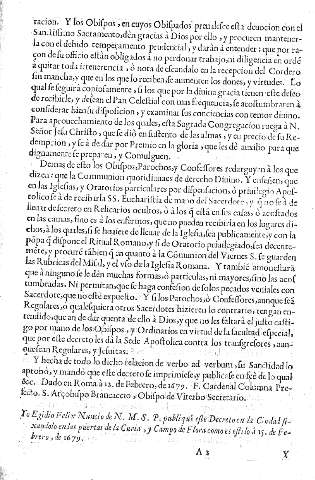 racion. Y los Obispos, en cuyos Obispados prevalece esta deuocion con el
Santissimo Sacramento, dèn gracias à Dios por ello, y procuren mantener-
la con el debido temperamento prudencial, y daràn à entender: que por ra-
çon de su oficio estàn obligados à no perdonar trabajo, ni diligencia en ordẽ
à quitar toda irreuerencia, ò nota de escandalo en la recepcion del Cordero
sin mancha, y que en los que lo reciben se aumenten los dones, y virtudes. Lo
qual se seguirà copiosamente, si los que por la diuina gracia tienen este deseo
de recibirle, y desean el Pan Celestial con mas frequencia, se acostumbraren à
considerar bien su disposicion, y examinar sus conciencias con temor diuino.
Para aprouechamiento de los quales, esta Sagrada Congregacion ruega à N.
Señor Jesu Christo, que se diò en sustento de las almas, y en precio de su Re-
dempcion, y se à de dar por Premio en la gloria, que les dè auxilio para que
dignamente se preparen, y Comulguen.
Demas de esto los Obispos, Parochos, y Confessores redarguyan à los que
dizen: que la Communion quotidiana es de derecho Diuino. Y enseñen, que
en las Iglesias, y Oratorios particulares por dispensacion, ò priuilegio Apos-
tolico se à de recibir la SS. Eucharistia de mano del Sacerdote, y q̃ no se à de
lleuar de secreto en Relicarios ocultos, ò à los q̃ està en sus casas, ò acostados
en las camas, sino es à los enfermos, que no pueden recibirla en los lugares di-
chos, à los quales, si se huuiere de lleuar de la Iglesia, sea publicamente, y con la
põpa q̃ dispone el Ritual Romano, y si de Oratorio priuilegiado, sea decente-
mẽte, y procurẽ tãbien q̃ en quanto à la Comunion del Viernes S. se guarden
las Rubricas del Missal, y el vso de la Iglesia Romana. Y tambiẽ amonestarã
que à ninguno se le dèn muchas formas, ò particulas, ni mayores, sino las acos-
tumbradas. Ni permitan, que se haga confesion de solos pecados veniales con
Sacerdote, que no estè expuesto. Y si los Parochos, ò Confessores, aunque seã
Regulares, ò qualesquiera otros Sacerdotes hizieren lo contrario; tengan en-
tendido, que an de dar quenta de ello à Dios, y que no les faltarà el justo casti-
go por mano de los Obispos, y Ordinarios en virtud de la facultad especial,
que por este decreto les dà la Sede Apostolica contra los transgressores, aun-
que sean Regulares, y Jesuitas.
Y hecha de todo lo dicho relacion de verbo ad verbum, su Santidad lo
aprouò, y mandò que este decreto se imprimiese, y publicase en feè de lo qual
&c. Dado en Roma à 12. de Febrero, de 1679. F. Cardenal Columna Pre-
fecto. S. Arçobispo Brancaccio, Obispo de Viterbo Secretario.
Yo Egidio Felix Nuncio de N. M. S. P. publiquè este Decreto en la Ciudad fi-
xandolo en las puertas de la Curia, y Campo de Flora como es estilo à 15. de Fe-
brero, de 1679.
A 2 Y